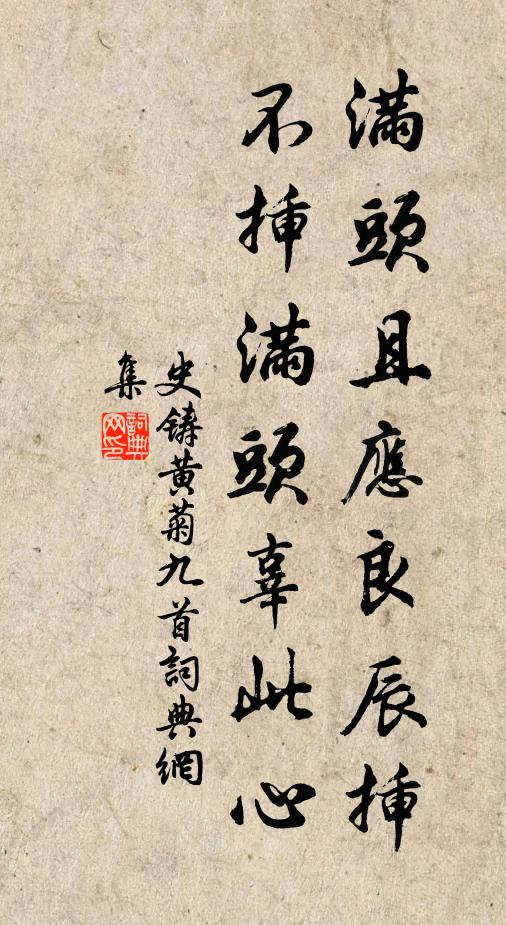 滿頭且應良辰揷
不揷滿頭辜此心
史鑄黃菊九首詞典網
集
詞典網印